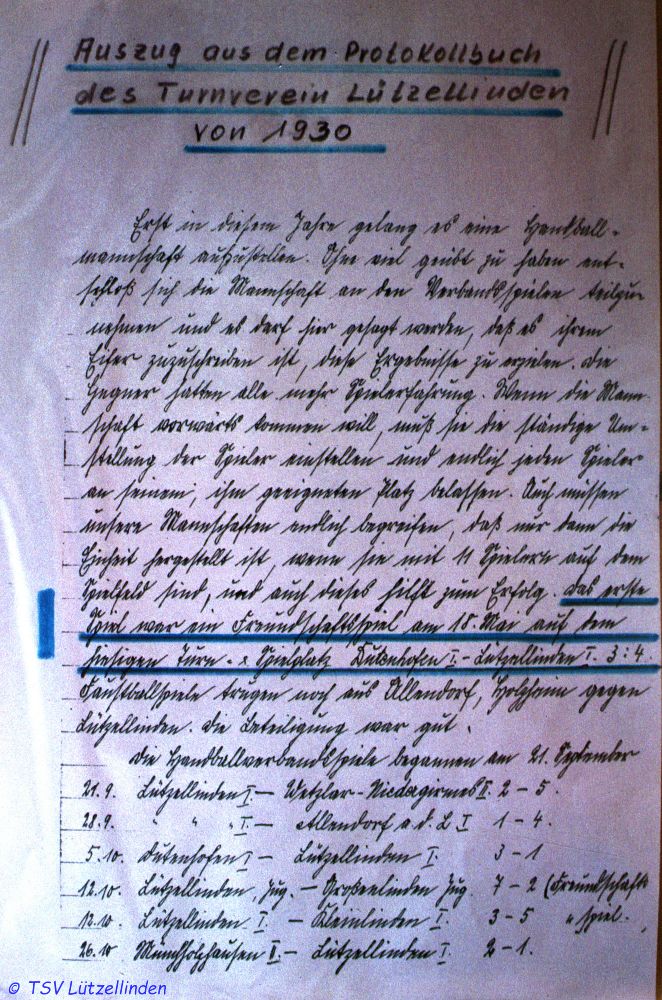 Auszug aus dem Protokollbuch
des Turnverein Lützellinden
von 1930
Erst in diesem Jahre gelang es eine Handball-
mannschaft aufzustellen. Ohne viel geübt zu haben ent-
schloß sich die Mannschaft an den Verbandsspielen teilzu-
nehmen und es darf hier gesagt werden, daß es ihrem
Eifer zuzuschreiben ist, diese Ergebnisse zu erzielen. Die
Gegner hatten alle mehr Spielerfahrung. Wenn die Mann-
schaft vorwärts kommen will, muß sie die ständige Um-
stellung der Spieler einstellen und endlich jeden Spieler
an seinem, ihm geeigneten Platz belassen. Auch müssen
unsere Mannschaften endlich begreifen, daß nur dann die
Einheit hergestellt ist, wenn sie mit 11 Spielern auf dem
Spielfeld sind, und auch dieses hilft zum Erfolg. Das erste
Spiel war ein Freundschaftsspiel am 18. Mai auf dem
hiesigen Turn- u Spielplatz Dutenhofen I. - Lützellinden I. 3:4.
Faustballspiele trugen noch aus Allendorf, Holzheim gegen
Lützellinden. Die Beteiligung war gut.
Die Handballverbandsspiele begannen am 21. September
21.9. Lützellinden I. - Wetzlar-Niedergirmes II. 2 - 5.
28.9. " " " I. - Allendorf a.d.L I 1 - 4.
5.10. Dutenhofen I - Lützellinden I. 3 - 1
12.10. Lützellinden, Jug. - Großenlinden Jug. 7 - 2 (Freundschafts
12.10. Lützellinden I. - Kleinlinden I. 3 - 5 " spiel.
26.10 Münchholzhausen II. - Lützellinden I. 2 - 1.
© TSV Lützellinden